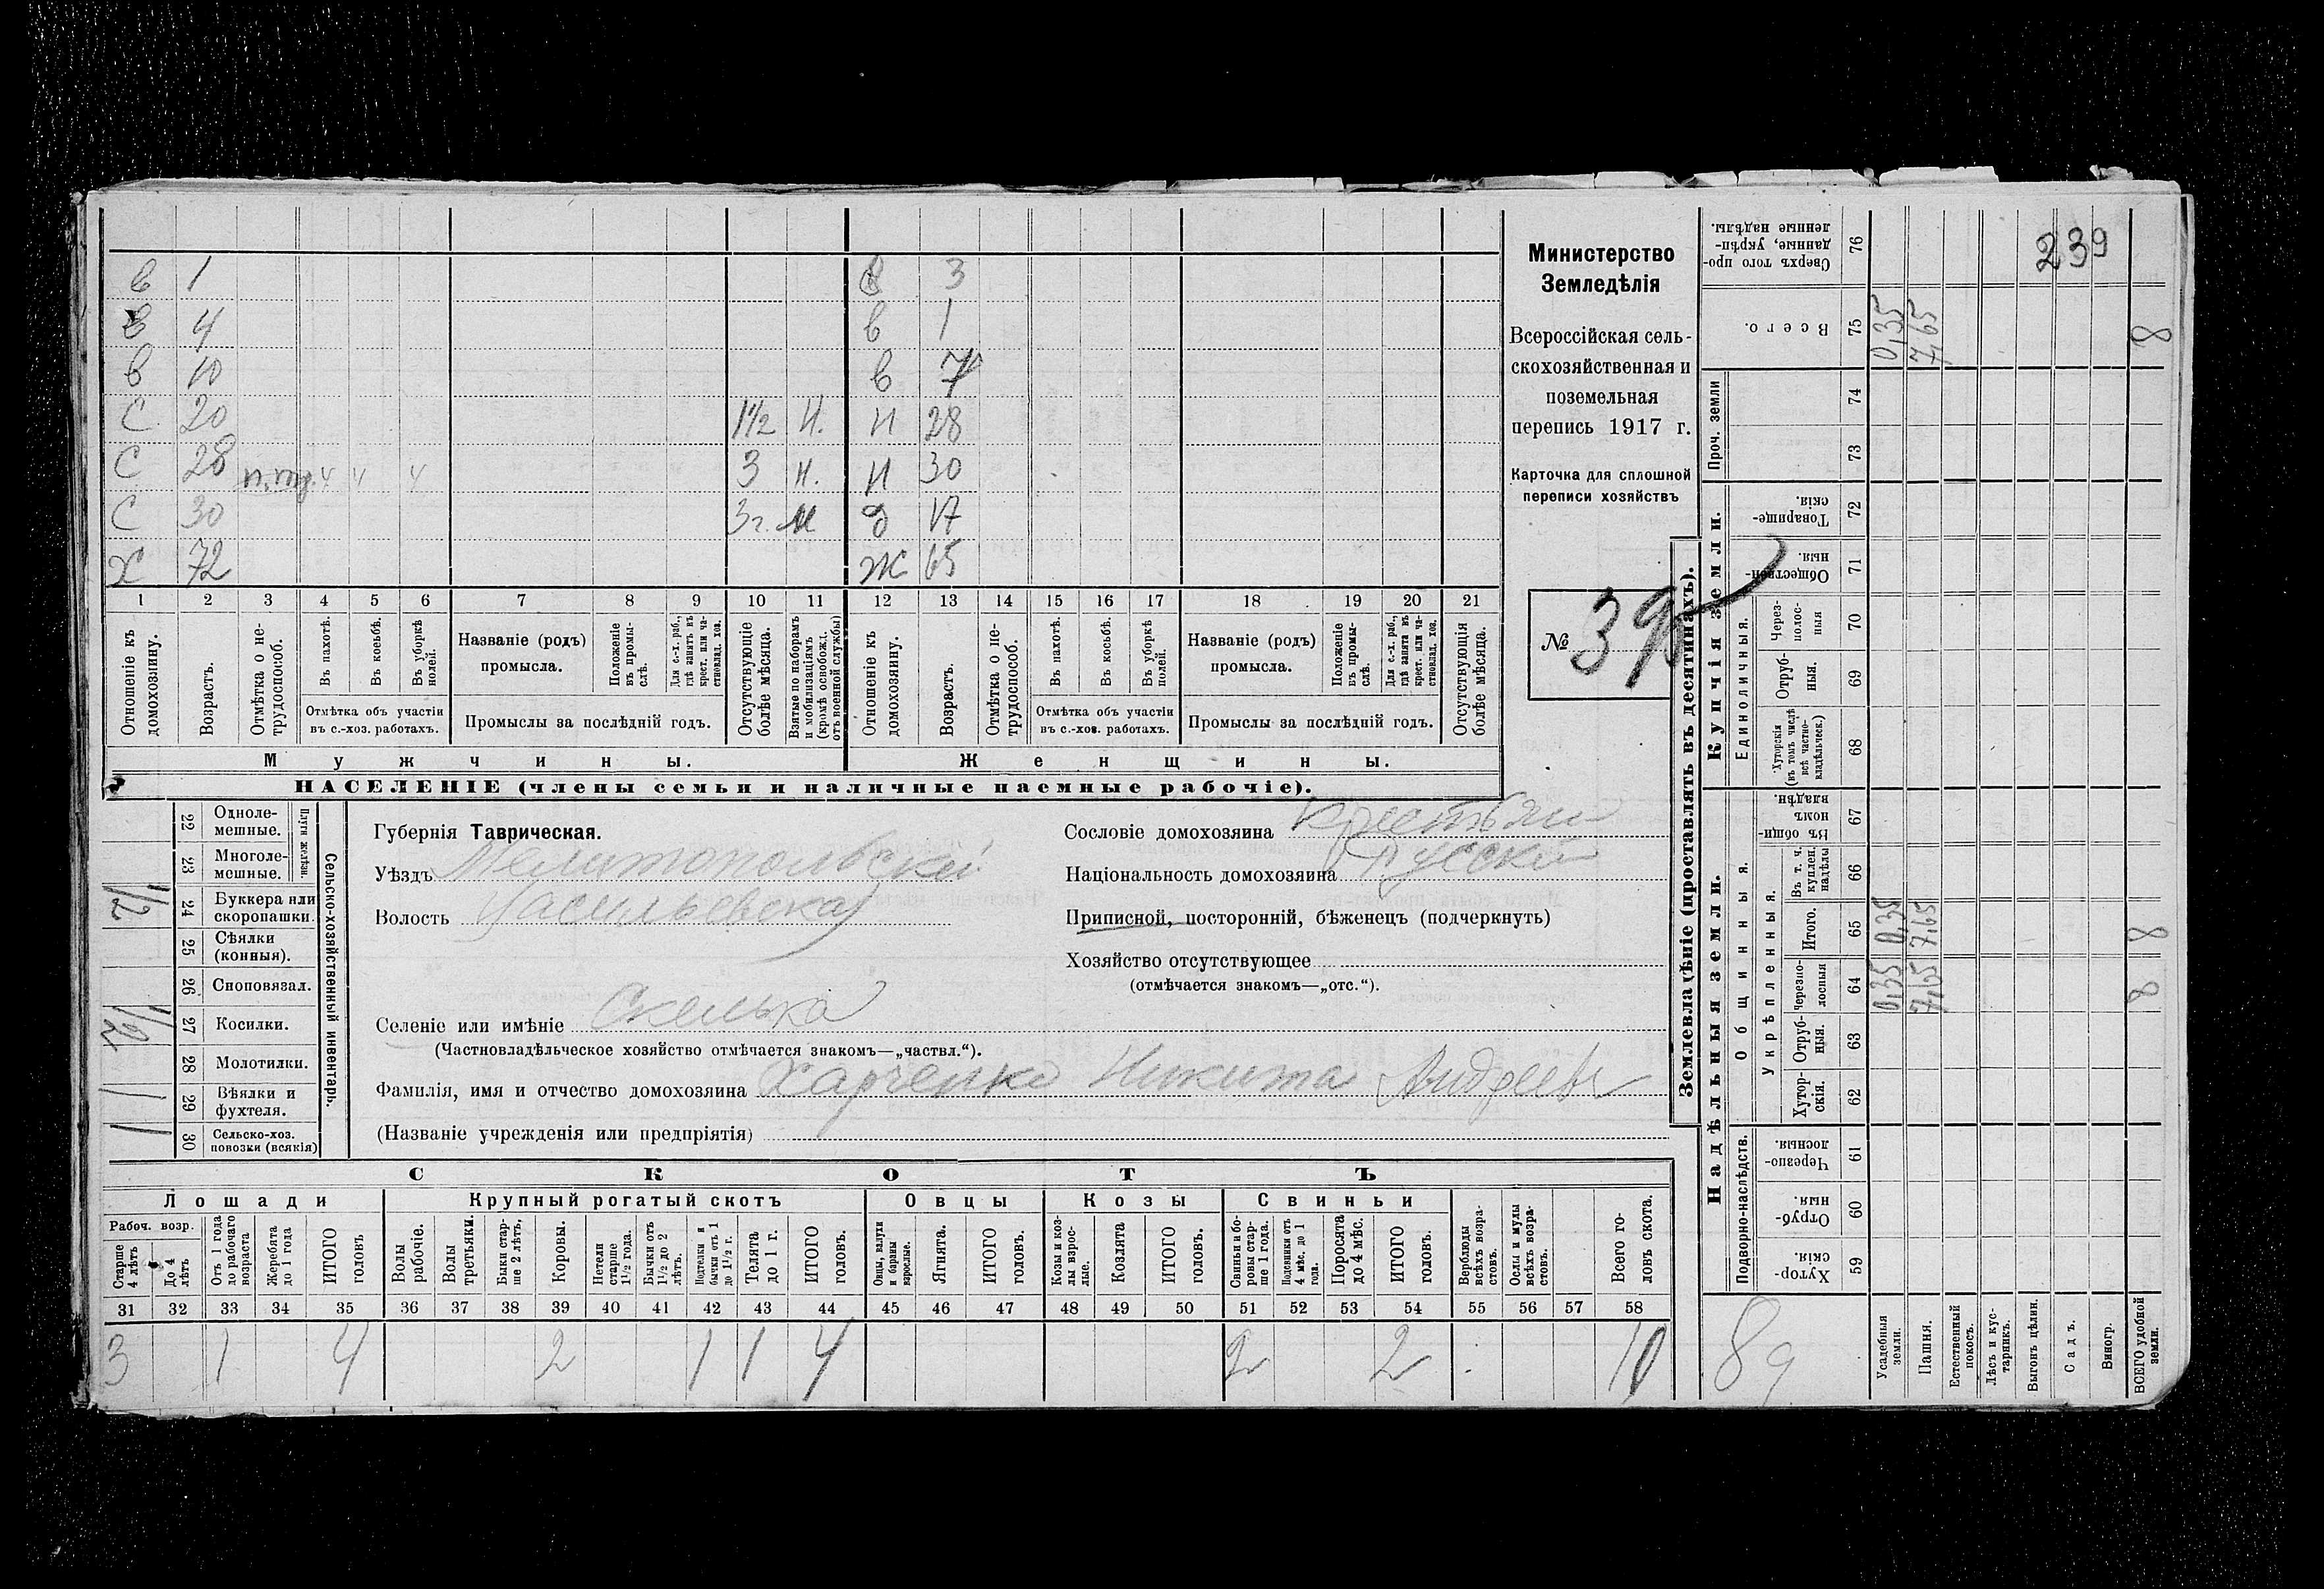 239
в 1 в 3
в 4 в 1
в 10 в 7
С 20 1½ Н. Н 28
С 28 4 4 4 3 Н. Н 30
С 30 3г. М д 17
Х 72 Ж 65
1 2 3 4 5 6 7 8 9 10 11 12 13 14 15 16 17 18 19 20 21
Отношеніе къ домохозяину.
Возрастъ.
Отмѣтка о не-трудоспособ.
Въ пахотѣ.
Въ косьбѣ.
Въ уборкѣ полей.
Отмѣтка объ участіи
въ с.-хоз. работахъ.
Названіе (родъ)
промысла.
Положеніе въ промы-слѣ.
Для с.-х. раб., гдѣ занятъ въ крест. или ча-стновлад. хоз.
Промыслы за послѣдній годъ.
Отсутствующіе болѣе мѣсяца.
Взятые по наборамъ и мобилизаціямъ (кромѣ освобожд. отъ военной службы)
Отношеніе къ домохозяину.
Возрастъ.
Отмѣтка о не-трудоспособ.
Въ пахотѣ.
Въ косьбѣ.
Въ уборкѣ полей.
Отмѣтка объ участіи
въ с.-хоз. работахъ.
Названіе (родъ)
промысла.
Положеніе въ промы-слѣ.
Для с.-х. раб., гдѣ занята въ крест. или ча-стновлад. хоз.
Промыслы за послѣдній годъ.
Отсутствующія болѣе мѣсяца.
Мужчины.
Женщины.
НАСЕЛЕНІЕ (члены семьи и наличные наемные рабочіе).
Министерство
Земледѣлія
Всероссійская сель-
скохозяйственная и
поземельная
перепись 1917 г.
Карточка для сплошной
переписи хозяйствъ
№ 395
22 Одноле-мешные.
23 Многоле-мешные.
Плуги желѣзн.
24 Буккера или скоропашки. 1/2
25 Сѣялки (конныя).
26 Сноповязал.
27 Косилки.
28 Молотилки.
29 Вѣялки и фухтеля. 1
30 Сельско-хоз. повозки (всякія) 1
Сельско-хозяйственный инвентарь.
Губернія Таврическая.
Уѣздъ Мелитопольскій
Волость Васильевская
Селеніе или имѣніе Скелька
(Частновладѣльческое хозяйство отмѣчается знакомъ—„частвл.“).
Фамилія, имя и отчество домохозяина Харченко Никита Андреевъ
(Названіе учрежденія или предпріятія)
Сословіе домохозяина Крестьян
Національность домохозяина Русскій
Приписной, посторонній, бѣженецъ (подчеркнуть)
Хозяйство отсутствующее
(отмѣчается знакомъ—„отс.“).
СКОТЪ
Лошади Крупный рогатый скотъ Овцы Козы Свиньи
Рабоч. возр.
Старше 4 лѣтъ
До 4 лѣтъ
Отъ 1 года до рабочаго возраста
Жеребята до 1 года
ИТОГО головъ
Волы рабочіе.
Волы третьяки.
Быки стар-ше 2 лѣтъ.
Коровы.
Нетели старше 1½ года.
Бычки отъ 1½ до 2 лѣтъ.
Подтелки и бычки отъ 1 до 1½ г.
Телята до 1 г.
ИТОГО головъ.
Овцы, валухи и бараны взрослые.
Ягнята.
ИТОГО головъ.
Козы и коз-лы взрос-лые.
Козлята
ИТОГО головъ.
Свиньи и бо-ровы стар-ше 1 года.
Подсвинки отъ 4 мѣс. до 1 года.
Поросята до 4 мѣс.
ИТОГО головъ.
Верблюды всѣхъ возра-стовъ.
Ослы и мулы всѣхъ возра-стовъ.
Всего го-ловъ скота.
31 32 33 34 35 36 37 38 39 40 41 42 43 44 45 46 47 48 49 50 51 52 53 54 55 56 57 58
3 1 4 2 1 1 4 2 2 10
Землевладѣніе (проставлять въ десятинахъ).
Надѣльныя земли.
Купчія земли.
Проч. земли
Подворно-наслѣдств.
Общинныя.
Укрѣпленныя.
Единоличныя.
59 Хутор-скія.
60 Отруб-ныя.
61 Черезпо-лосныя
62 Хутор-скія.
63 Отруб-ныя.
64 Черезпо-лосныя 0,35 7,65 8
65 Итого. 0,35 7,65 8
66 Въ т. ч. куплен. надѣлы
67 Въ общин-номъ владѣн.
68 Хуторскія (въ томъ числѣ всѣ частно-владѣльческ.)
69 Отруб-ныя.
70 Через-полос-ныя
71 Обществен-ныя.
72 Товарище-скія.
73
74
75 Всего. 0,35 7,65 8
76 Сверхъ того про-данные, укрѣп-ленные надѣлы.
Усадебныя земли.
Пашня.
Естественный покосъ.
Лѣсъ и кус-тарникъ.
Выгонъ цѣлин.
Садъ.
Виногр.
ВСЕГО удобной земли.
89